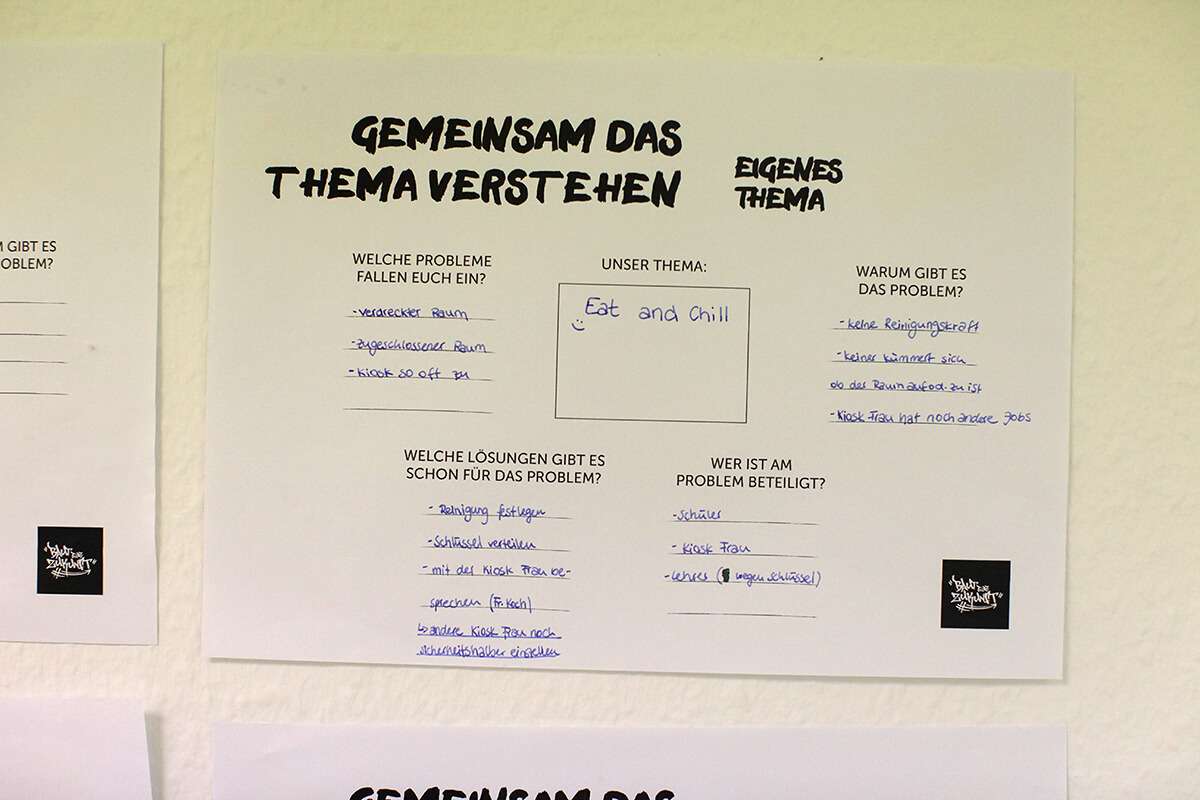 GEMEINSAM DAS
THEMA VERSTEHEN
EIGENES
THEMA
WELCHE PROBLEME
FALLEN EUCH EIN?
-verdreckter Raum
-zugeschlossener Raum
-Kiosk so oft zu
UNSER THEMA:
Eat and Chill
WARUM GIBT ES
DAS PROBLEM?
-keine Reinigungskraft
-keiner kümmert sich
ob der Raum auf od. zu ist
-Kiosk Frau hat noch andere Jobs
WELCHE LÖSUNGEN GIBT ES
SCHON FÜR DAS PROBLEM?
- Reinigung festlegen
-Schlüssel verteilen
- mit der Kiosk Frau be-
sprechen (Fr. Koch)
↳ andere Kiosk Frau noch
sicherheitshalber einstellen
WER IST AM
PROBLEM BETEILIGT?
-Schüler
- Kiosk Frau
-Lehrer ( wegen Schlüssel)
"BAUT EURE
ZUKUNFT"
M GIBT ES
OBLEM?
"BAUT EURE
ZUKUNFT"
GEMEINSAM DAS